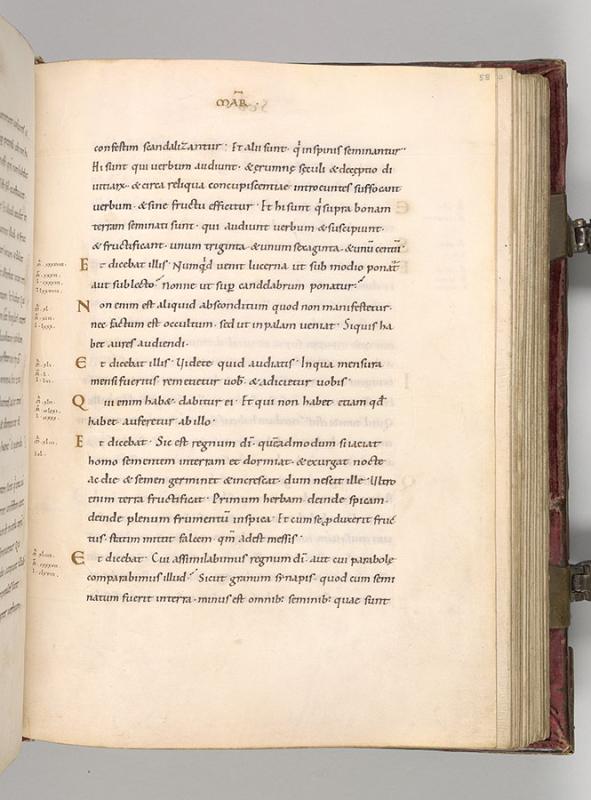 58
MAR.
confestim scandalizantur. Et alii sunt. q̇ inspinis seminantur.
Hi sunt qui verbum audiunt. & ęrumnę sęculi & deceptio di
uitiarx. & circa reliqua concupiscentiae introeuntes suffocant
verbum. & sine fructu efficitur. Et hi sunt q̇ supra bonam
terram seminati sunt. qui audiunt verbum & suscipiunt.
& fructificant. unum triginta & unum sexaginta. & unū centū.
Et dicebat illis. Numqd venit lucerna ut sub modio ponat̄
aut sub lecto. nonne ut sup̄ candelabrum ponatur.
Non enim est aliquid absconditum quod non manifestetur.
nec factum est occultum. sed ut in palam veniat. Siquis ha
bet aures audiendi.
Et dicebat illis. Videte quid audiatis. In qua mensura
mensi fueritis remetietur uob̄. & adicietur vobis
Qui enim hab& dabitur ei. Et qui non habet etiam qđ
habet auferetur ab illo.
Et dicebat. Sic est regnum dī. quēadmodum si iaciat
homo sementem interram et dormiat. & exurgat nocte
ac die & semen germinet & increscat. dum nescit ille. Vltro
enim terra fructificat. Primum herbam. deinde spicam.
deinde plenum frumentū inspica. Et cum se ꝓduxerit fruc
tus. statim mittit falcem. qm̄ adest messis.
Et dicebat. Cui assimilabimus regnum dī. aut cui parabole
comparabimus illud. Sicut granum synapis. quod cum semi
natum fuerit interra. minus est omnib; seminib; quae sunt